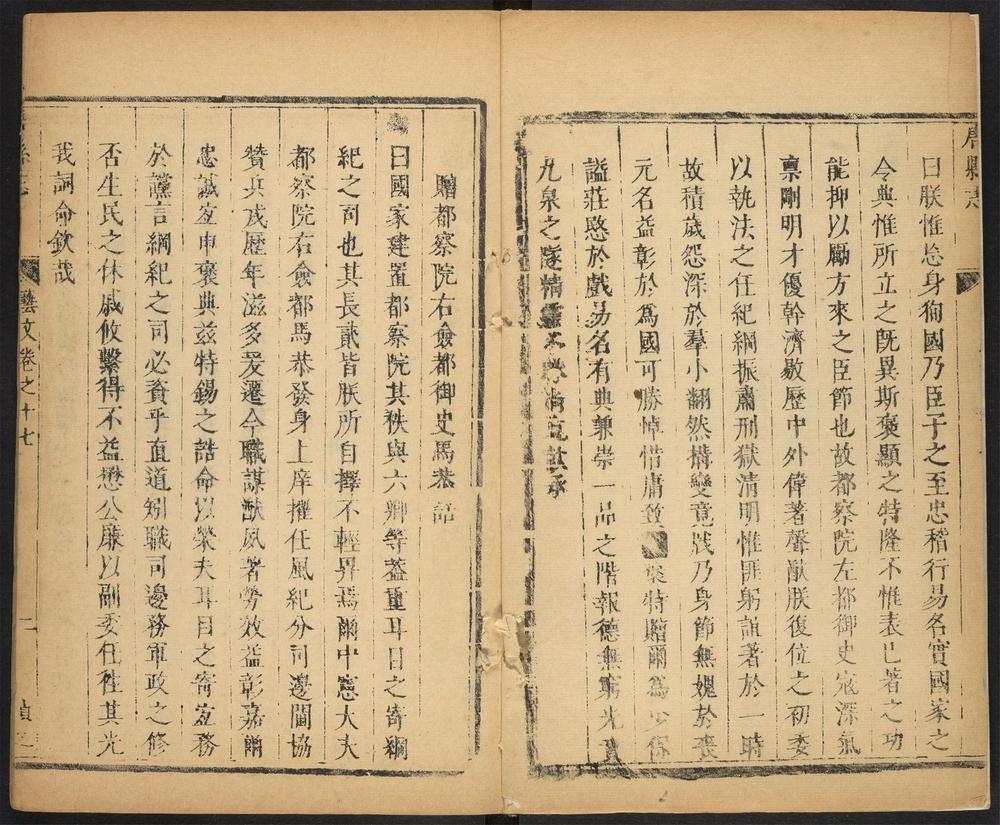 唐縣志
曰朕惟忘身狥國乃臣子之至忠稽行易名實國家之
令典惟所立之旣異斯褒顯之特隆不惟表已著之功
能抑以勵方來之臣節也故都察院左都御史寇深氣
禀剛明才優幹濟敭歷中外偉著聲猷朕復位之初委
以執法之任紀綱振肅刑獄清明惟匪躬誼著於一時
故積歲怨深於羣小翻然搆變竟戕乃身節無媿於喪
元名益彰於爲國可勝悼惜庸致特贈爾爲少保
謚莊愍於戲易名有典兼崇一品之階報德無窮光
九泉之隧精
贈都察院右僉都御史馬恭誥
曰國家建置都察院其秩與六卿等葢重耳目之寄綱
紀之司也其長貳皆朕所自擇不輕畀焉爾中憲大夫
都察院右僉都馬恭發身上庠擢任風紀分司邊閫協
贊兵戎歷年滋多爰遷今職謀猷夙著勞效益彰嘉爾
忠誠宜申褒典兹特錫之誥命以榮夫耳目之寄宜務
於讜言綱紀之司必資乎直道矧職司邊務軍政之修
否生民之休戚攸繫得不益懋公廉以副委任徃其光
我訶命欽哉
藝文卷之十七
二